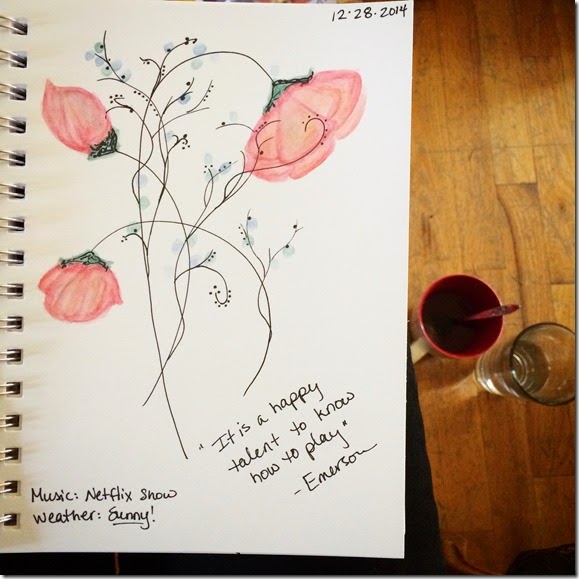 12.28.2014
"It is a happy
talent to know
how to play"
- Emerson
Music: Netflix Show
Weather: Sunny!